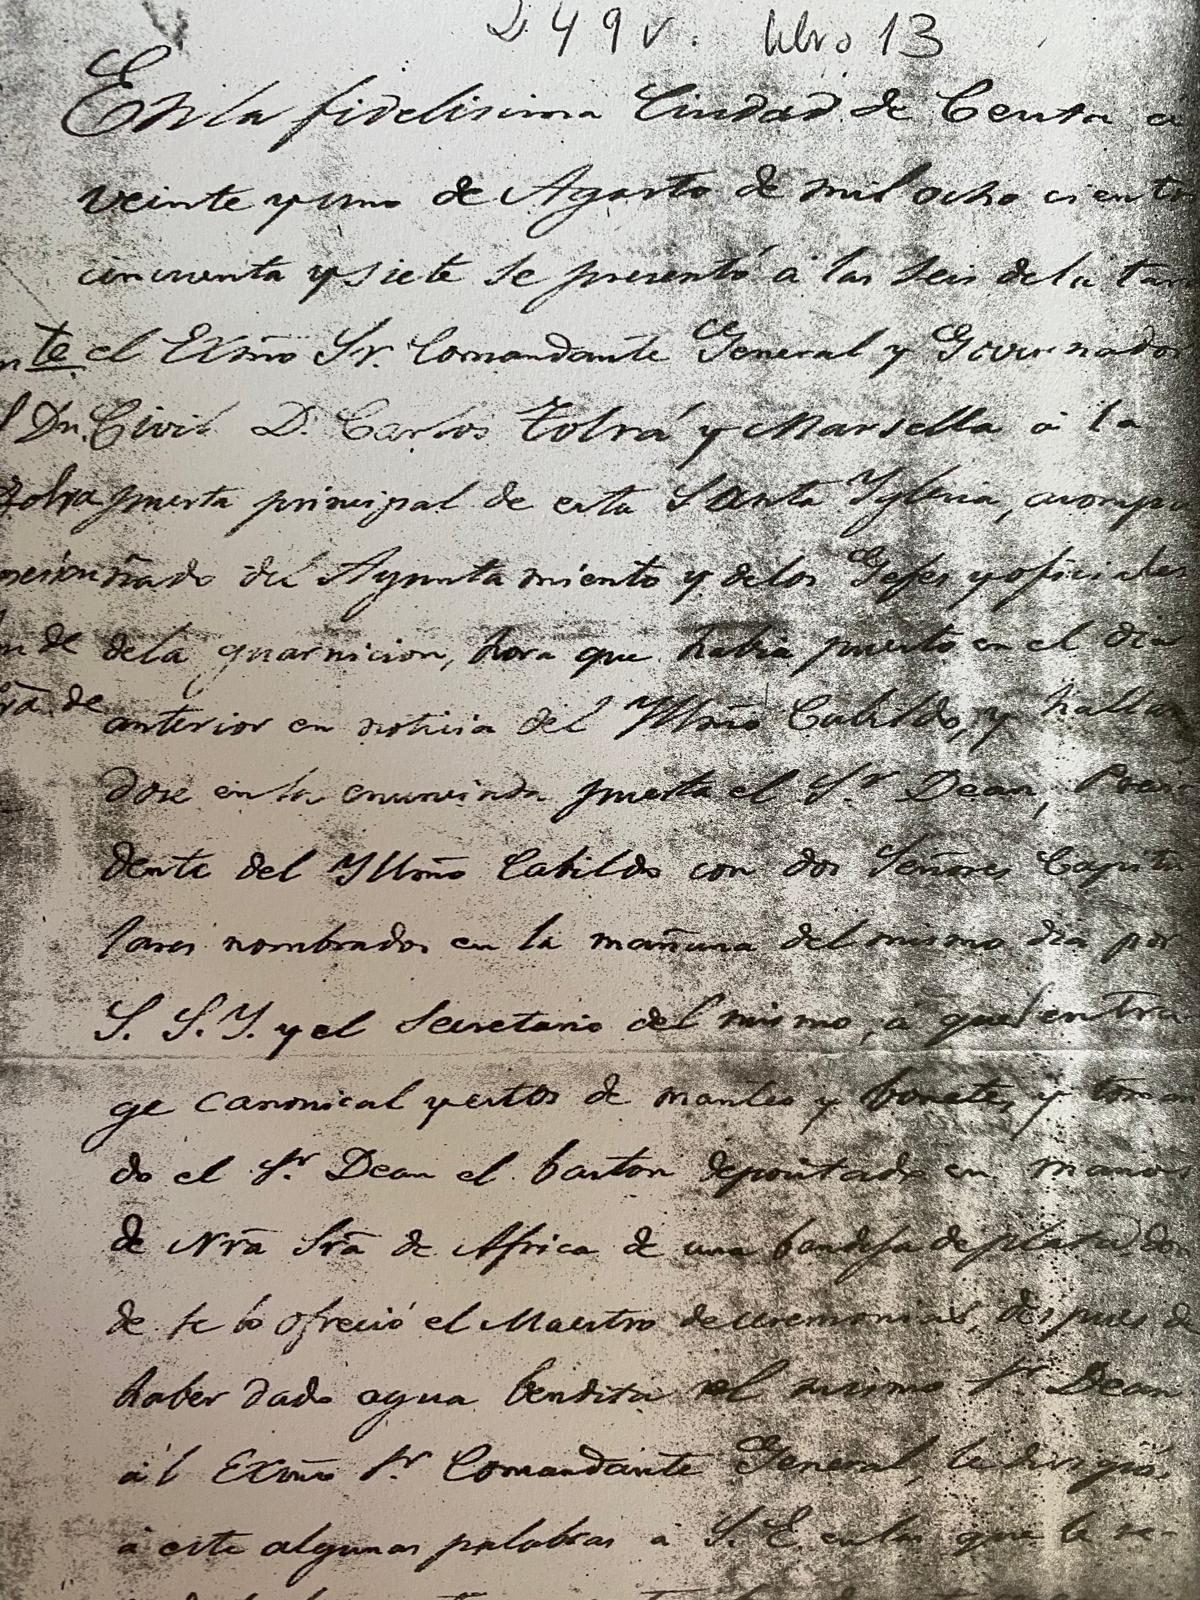 249v. libro 13
En la fidelisima Ciudad de Ceuta á
veinte y uno de Agosto de mil ocho cientos
cincuenta y siete se presentó á las seis de la tar
te el Exmo Sr. Comandante General y Governador
Dn. Civil D. Carlos Tolrá y Marsella á la
Tolra puerta principal de esta Santa Yglesia, acompa
ñado del Ayuntamiento y de los Gefes y oficiales
de de la guarnicion, hora que habia puesto en el dia
de anterior en noticia del Yllmo Cabildo, y hallan
dose en la enunciada puerta el Sr Dean, Presi
dente del Yllmo Cabildo con dos Señores Capitu
lares nombrados en la mañana del mismo dia por
S. S. Y. y el Secretario del mismo, á quel en tra
ge canonical yestos de manteo y bonete, y toman
do el Sr Dean el baston depositado en manos
de Nrã Srã de Africa de una bandeja de plata don
de se lo ofreció el Maestro de ceremonias, despues de
haber dado agua bendita el mismo Sr Dean
ál Exmo Sr Comandante General, le dirigió,
á este algunas palabras á S. E. en las que le re-